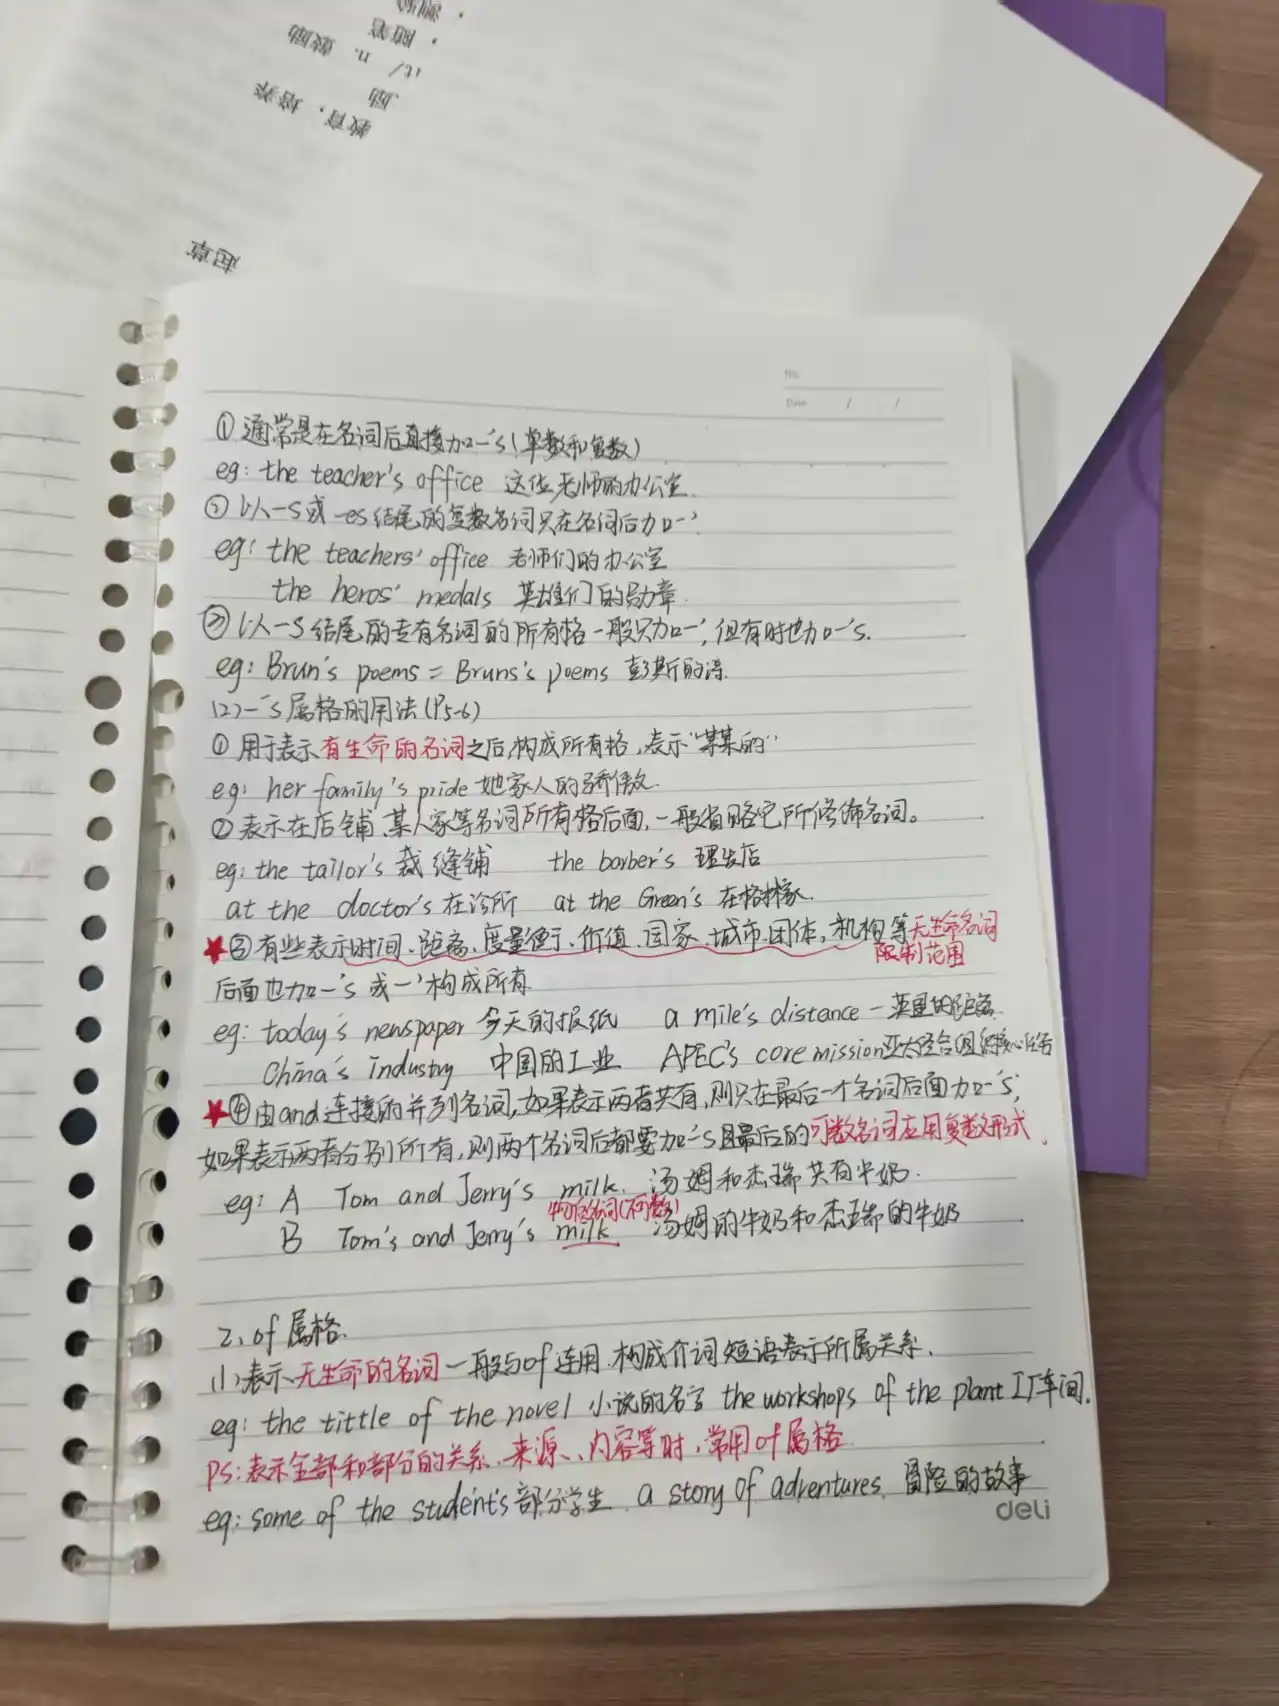 测验
· 随笔
it/ n. 鼓励
励
教育，培养
起草
No.
Date / /
①通常是在名词后直接加-'s(单数和复数)
eg: the teacher's office 这位老师的办公室.
②以-s或-es结尾的复数名词只在名词后加-'
eg: the teachers' office 老师们的办公室
the heros' medals 英雄们的勋章.
③以-s结尾的专有名词的所有格一般只加-', 但有时也加-'s.
eg: Brun's poems = Bruns's poems 彭斯的诗.
(2)-'s属格的用法(P5-6)
①用于表示有生命的名词之后,构成所有格,表示"某某的"
eg: her family's pride 她家人的骄傲.
②表示在店铺、某人家等名词所有格后面,一般省略它所修饰名词。
eg: the tailor's 裁缝铺 the barber's 理发店
at the doctor's 在诊所 at the Green's 在格林家.
★③有些表示时间、距离、度量衡、价值、国家、城市、团体,机构等无生命名词
限制范围
后面也加-'s或-'构成所有
eg: today's newspaper 今天的报纸 a mile's distance 一英里的距离.
China's industry 中国的工业 APEC's core mission亚太经合组织核心任务
★④由and连接的并列名词,如果表示两者共有,则只在最后一个名词后面加-'s;
如果表示两者分别所有,则两个名词后都要加-'s且最后的可数名词应用复数形式.
eg: A Tom and Jerry's milk. 汤姆和杰瑞共有牛奶.
物质名词(不可数)
B Tom's and Jerry's milk 汤姆的牛奶和杰瑞的牛奶
2、of属格.
(1)表示无生命的名词一般与of连用.构成介词短语表示所属关系.
eg: the tittle of the novel 小说的名字 the workshops of the plant 工厂车间.
PS:表示全部和部分的关系、来源、内容等时,常用of属格
eg: some of the student's 部分学生. a story of adventures. 冒险的故事
deli